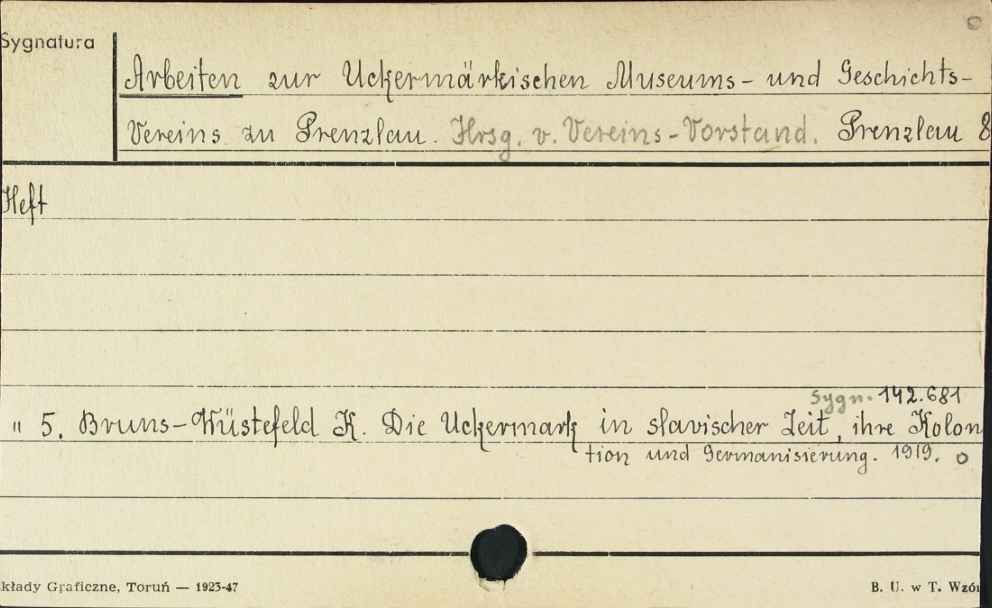 Sygnatura
Arbeiten zur Uckermärkischen Museums- und Geschichts-
Vereins zu Prenzlau. Hrsg. v. Vereins-Vorstand. Prenzlau 8
Heft
Sygn. 142.681
" 5. Bruns-Wüstefeld K. Die Uckermark in slavischer Zeit, ihre Kolon
tion und Germanisierung. 1919. o
kłady Graficzne, Toruń — 1923-47
B. U. w T. Wzó